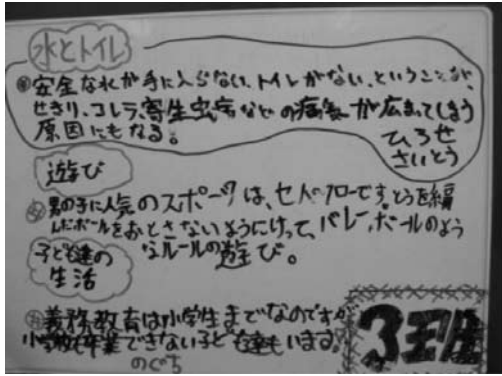 水とトイレ
安全な水が手に入らない、トイレがない、ということが、
せきり、コレラ、寄生虫病などの病気が広まってしまう
原因にもなる。
ひろせ
さいとう
遊び
男の子に人気のスポーツは、セパタクローです。とうを編
んだボールをおとさないようにけって、バレーボールのよう
なルールの遊び。
子ども達の
生活
義務教育は小学生までなのですが
小学校も卒業できない子ども達もいます。
のぐち
3班